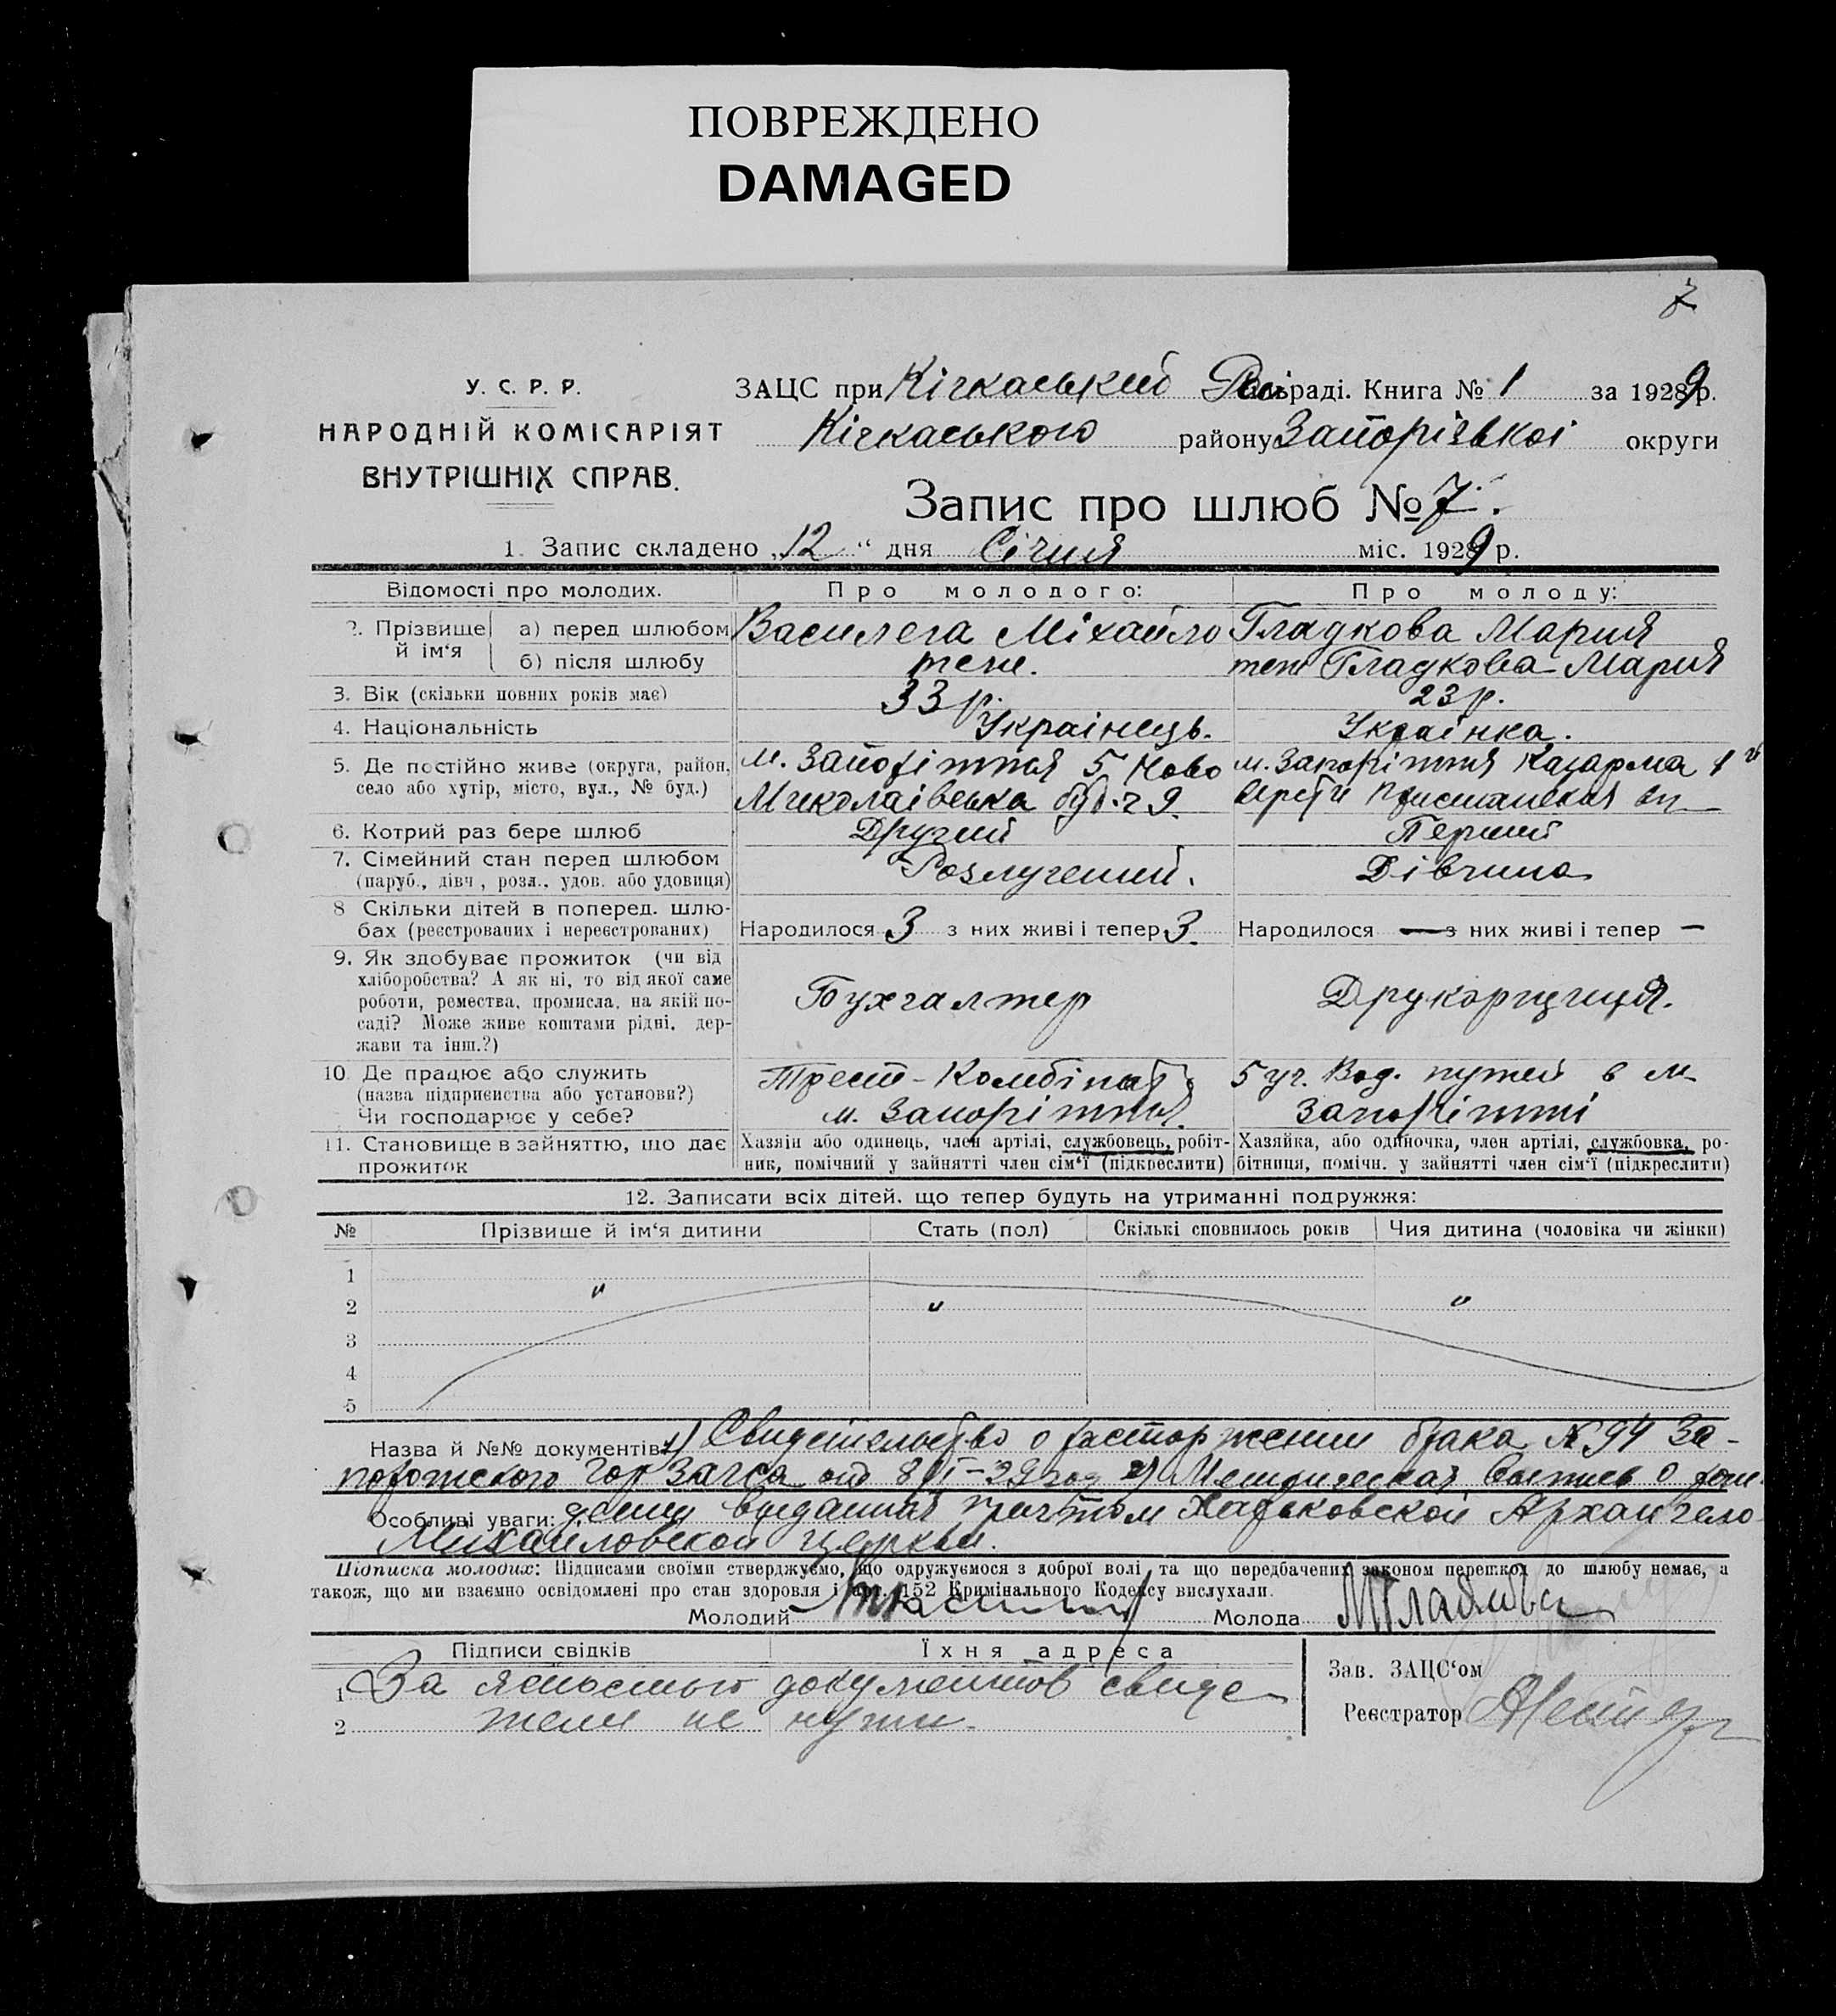 ПОВРЕЖДЕНО
DAMAGED
7
У. С. Р. Р.
НАРОДНІЙ КОМІСАРІЯТ
ВНУТРІШНІХ СПРАВ.
ЗАЦС при Кічкаський раді. Книга № 1 за 1929 р.
Кічкаського району Запорізькоі округи
Запис про шлюб № 7.
1. Запис складено „12“ дня Січня міс. 1929 р.
Відомості про молодих. Про молодого: Про молоду:
2. Прізвище й ім‘я
а) перед шлюбом Василега Міхайло Гладкова Мария
б) після шлюбу теж. теж Гладкова Мария
3. Вік (скільки повних років має) 33 р. 23 р.
4. Національність Украінець. Украінка.
5. Де постійно живе (округа, район, м. Запоріжжя 5 Ново м. Запоріжжя Казарма
село або хутір, місто, вул., № буд.) Миколаівська буд.
6. Котрий раз бере шлюб Другий Перший
7. Сімейний стан перед шлюбом Розлучений. Дівчина
(паруб., дівч., розл., удов. або удовиця)
8 Скільки дітей в поперед. шлю-
бах (реєстрованих і нереєстрованих) Народилося 3 з них живі і тепер 3. Народилося — з них живі і тепер —
9. Як здобуває прожиток (чи від
хліборобства? А як ні, то від якої саме
роботи, ремества, промисла, на якій по- Бухгалтер Друкорщиця.
саді? Може живе коштами рідні, дер-
жави та інш.?)
10. Де працює або служить Трест-Комбінат 5 уч. Вод. путей в м
(назва підприємства або установи?) м. Запоріжжя. Запоріжжі
Чи господарює у себе?
11. Становище в зайняттю, що дає Хазяїн або одинець, член артілі, службовець, робіт- Хазяйка, або одиночка, член артілі, службовка, ро-
прожиток ник, помічний у зайнятті член сім‘ї (підкреслити) бітниця, помічн. у зайнятті член сім‘ї (підкреслити)
12. Записати всіх дітей, що тепер будуть на утриманні подружжя:
№ Прізвище й ім‘я дитини Стать (пол) Скількі сповнилось років Чия дитина (чоловіка чи жінки)
1
2 " " "
3
4
5
Назва й №№ документів: 1) Свидетельство о расторжении брака № 94 За-
порожского Гор Загса от 8/I-29 год 2) Метрическая о рож-
Особливі уваги: дении Выданная причтом Харьковской Архангело
Михайловской церкви.
Підписка молодих: Підписами своїми стверджуємо, що одружуємося з доброї волі та що передбачених законом перешкод до шлюбу немає, а
також, що ми взаємно освідомлені про стан здоровля і арт. 152 Кримінального Кодексу вислухали.
Молодий Молода МГладкова
Підписи свідків Їхня адреса
1 За ясностью документов свиде-
2 тели не нужн.
Зав. ЗАЦС‘ом
Реєстратор